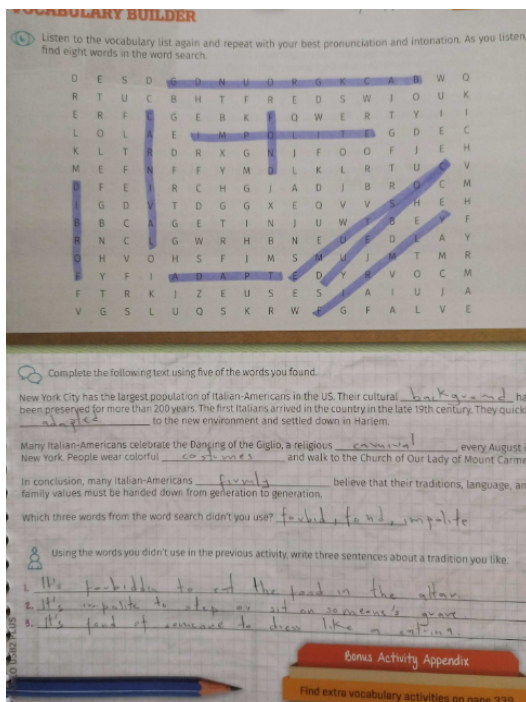 VOCABULARY BUILDER
Listen to the vocabulary list again and repeat with your best pronunciation and intonation. As you listen
find eight words in the word search.
D E S D G D N U O R G K C A B W Q
R T U C B H T F R E D S W J O U K
E R F C G E B K F Q W E R T Y I I
L O L A E I M P O L I T E G D E C
K L T R D R X G N J F O O F J E H
M E F N F F Y M D L K L R T U C V
D F E I R C H G J A D J B R O C M
I G D V T D G G X E Q V V S H E H
B B C A G E T I N J U W T B E Y F
R N C L G W R H B N E U E D E A Y
O H V O H S F J M S M U J M T M R
F Y F I A D A P T E D Y R V O C M
F T R K J Z E U S E S I A I U J A
V G S L U Q S K R W F G F A L V E
Complete the following text using five of the words you found.
New York City has the largest population of Italian-Americans in the US. Their cultural background ha
been preserved for more than 200 years. The first Italians arrived in the country in the late 19th century. They quick
adapted to the new environment and settled down in Harlem.
Many Italian-Americans celebrate the Dancing of the Giglio, a religious carnival, every August
New York. People wear colorful costumes and walk to the Church of Our Lady of Mount Carme
In conclusion, many Italian-Americans firmly believe that their traditions, language, an
family values must be handed down from generation to generation.
Which three words from the word search didn't you use? forbid, fond, impolite
Using the words you didn't use in the previous activity, write three sentences about a tradition you like.
1. It's forbiddin to eat the food in the altar
2. It's impolite to step or sit on someone's grave
3. It's fond of someone to dress like a catrina
Bonus Activity Appendix
Find extra vocabulary activities on page 229